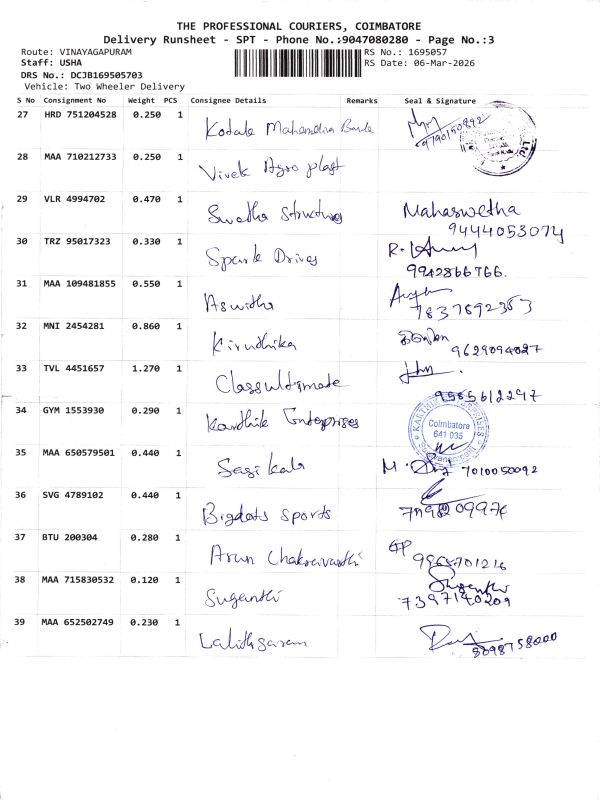 THE PROFESSIONAL COURIERS, COIMBATORE
Delivery Runsheet - SPT - Phone No.:9047080280 - Page No.:3
Route: VINAYAGAPURAM RS No.: 1695057
Staff: USHA RS Date: 06-Mar-2026
DRS No.: DCJB169505703
Vehicle: Two Wheeler Delivery
S No Consignment No Weight PCS Consignee Details Remarks Seal & Signature
27 HRD 751204528 0.250 1 Kotak Mahendra Bank
9790150892
28 MAA 710212733 0.250 1 Vivek Agro plast
29 VLR 4994702 0.470 1 Swetha Structures Mahaswetha
9444053074
30 TRZ 95017323 0.330 1 Spark Drives
9942866766.
31 MAA 109481855 0.550 1 Aswitha
7837892353
32 MNI 2454281 0.860 1 Kirudhika
9629094027
33 TVL 4451657 1.270 1 Classultimate
9585612297
34 GYM 1553930 0.290 1 Karthik Enterprises
Coimbatore
641 035
35 MAA 650579501 0.440 1 Sasikala 7010050092
36 SVG 4789102 0.440 1 Bigdots sports
37 BTU 200304 0.280 1 Arun Chakravarthi
9965701216
38 MAA 715830532 0.120 1 Suganthi
7397140209
39 MAA 652502749 0.230 1 Lalithsaram
8098758000